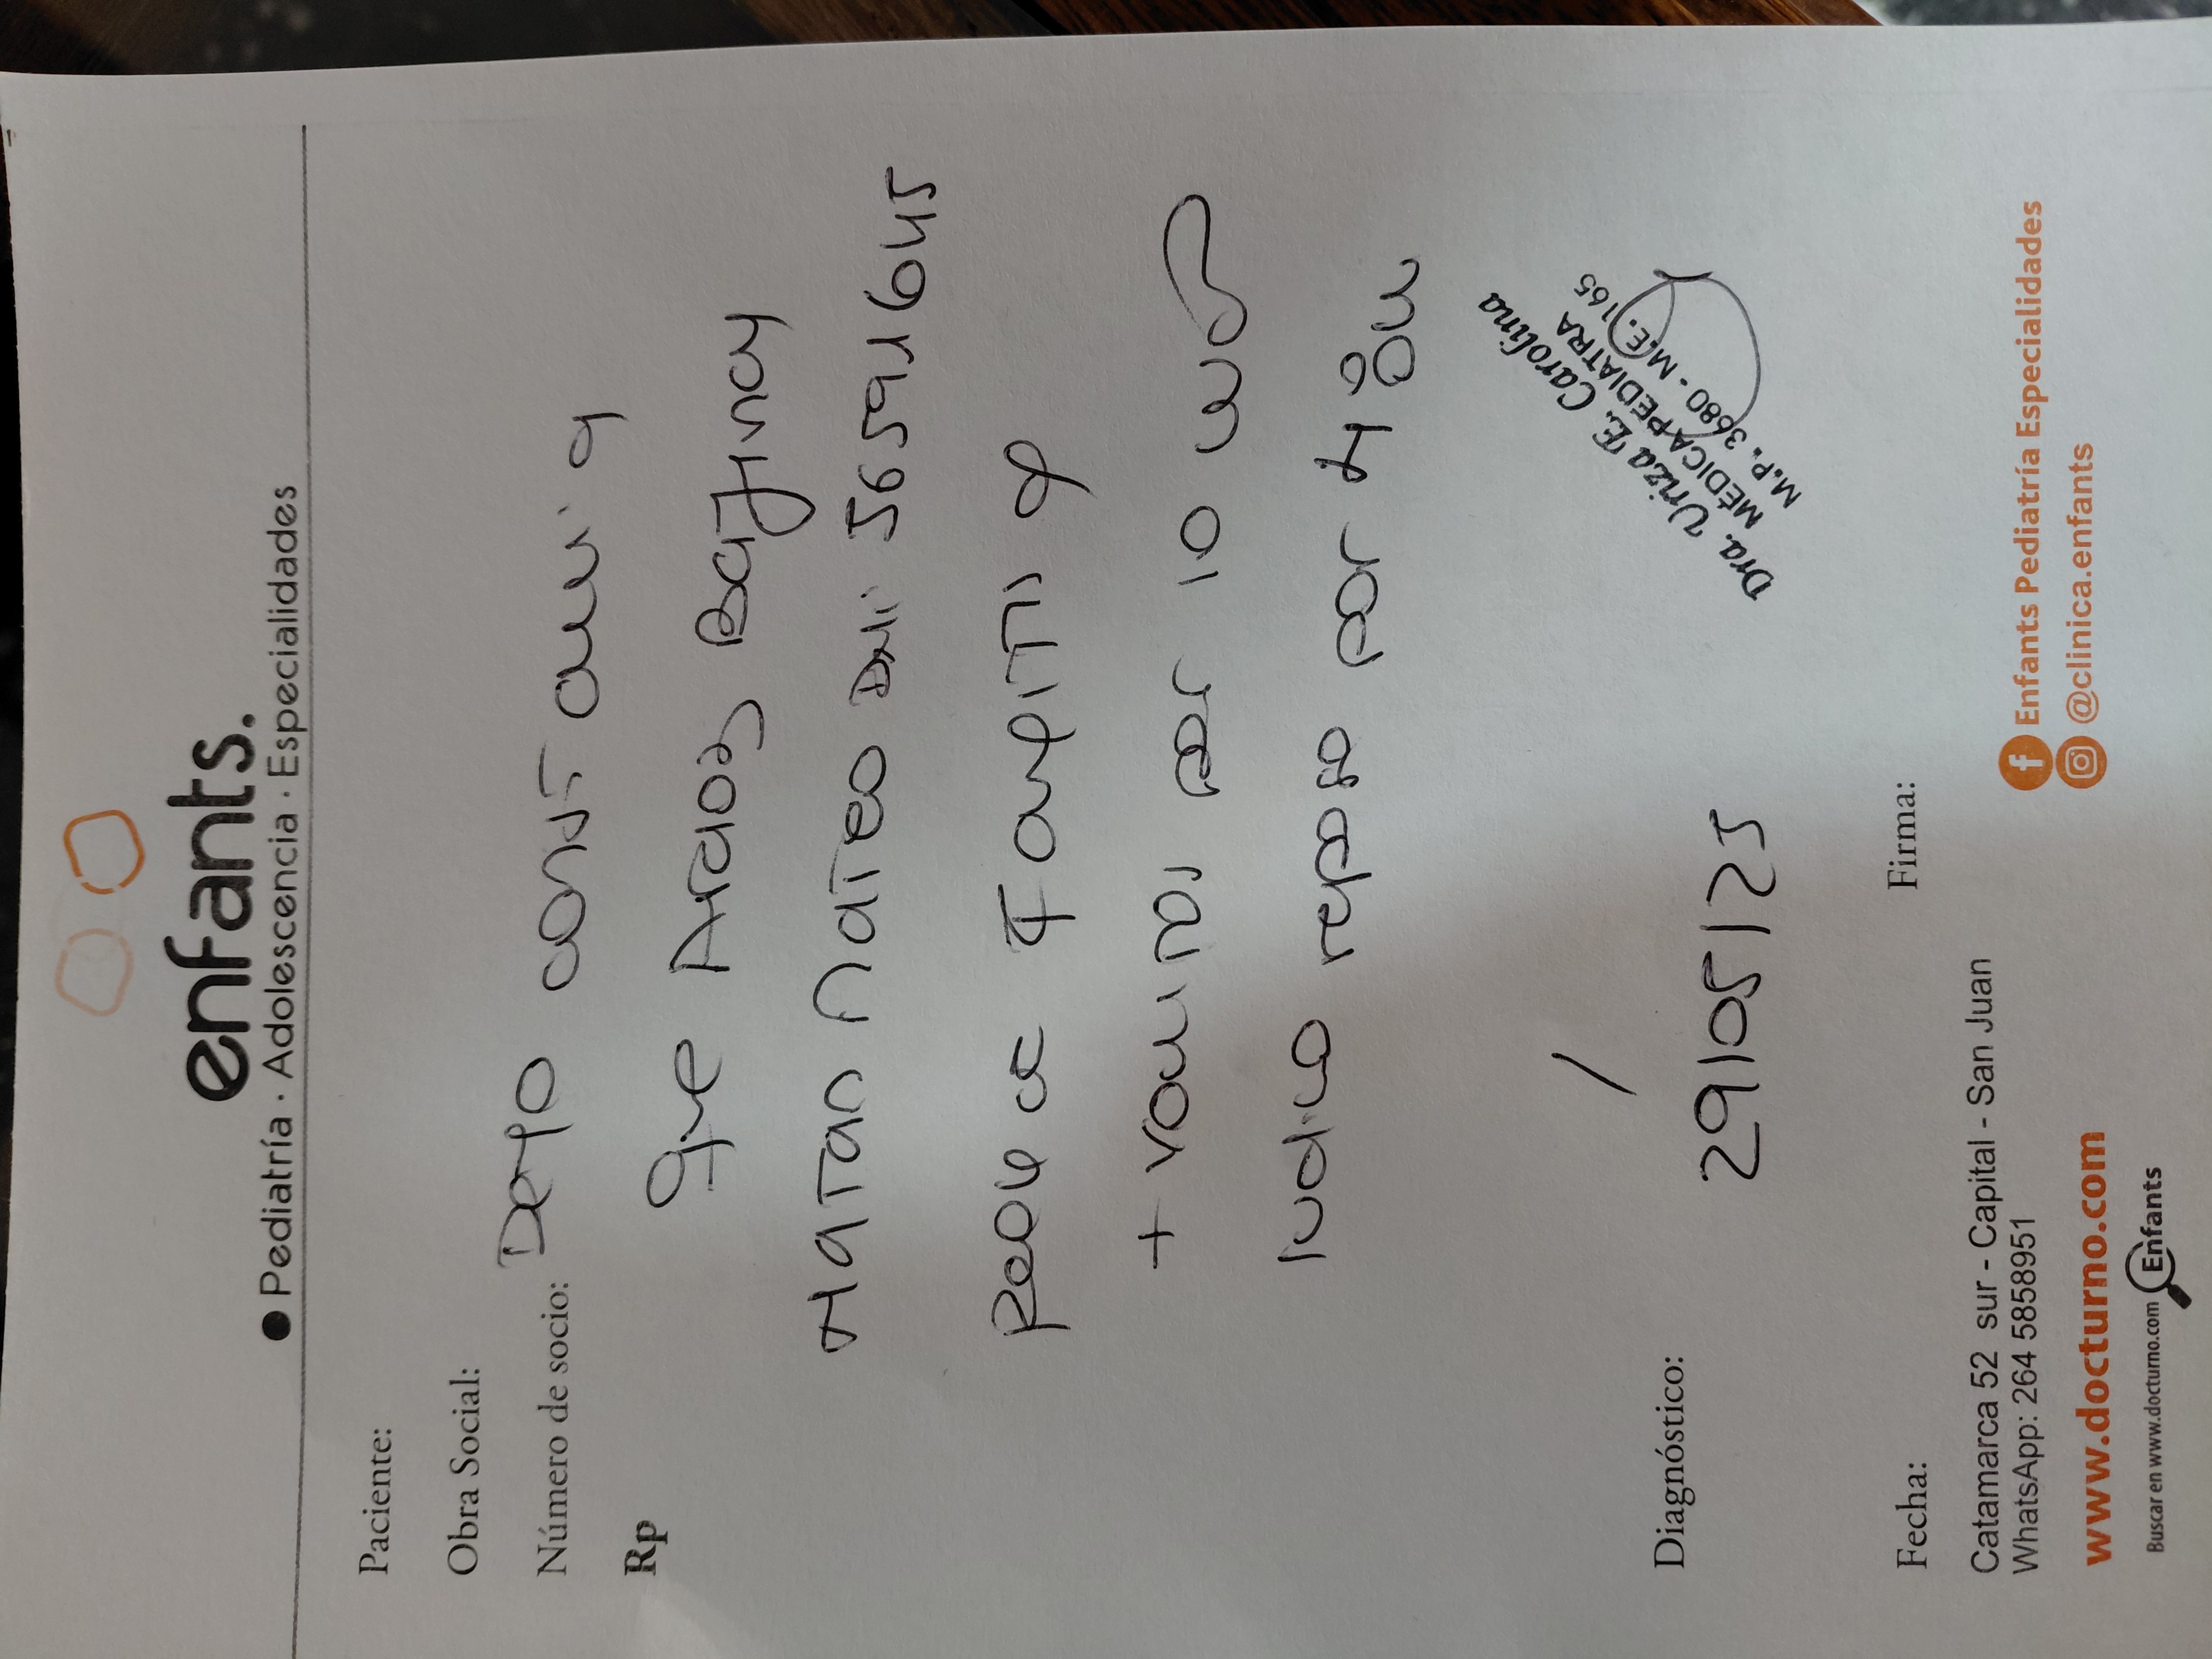 enfants.
Pediatría · Adolescencia · Especialidades
Paciente:
Obra Social:
Número de socio:
Dejo constancia
Rp
que Araoz
Natan Mateo DNI 56591645
+ vomitos por lo
indico reposo por 48
Dra. Uriza E. Carolina
MÉDICA PEDIATRA
M.P. 3680 - M.E. 1165
Diagnóstico:
29/05/25
Fecha:
Firma:
Catamarca 52 sur - Capital - San Juan
WhatsApp: 264 5858951
Enfants Pediatría Especialidades
@clinica.enfants
www.docturno.com
Buscar en www.docturno.com Enfants